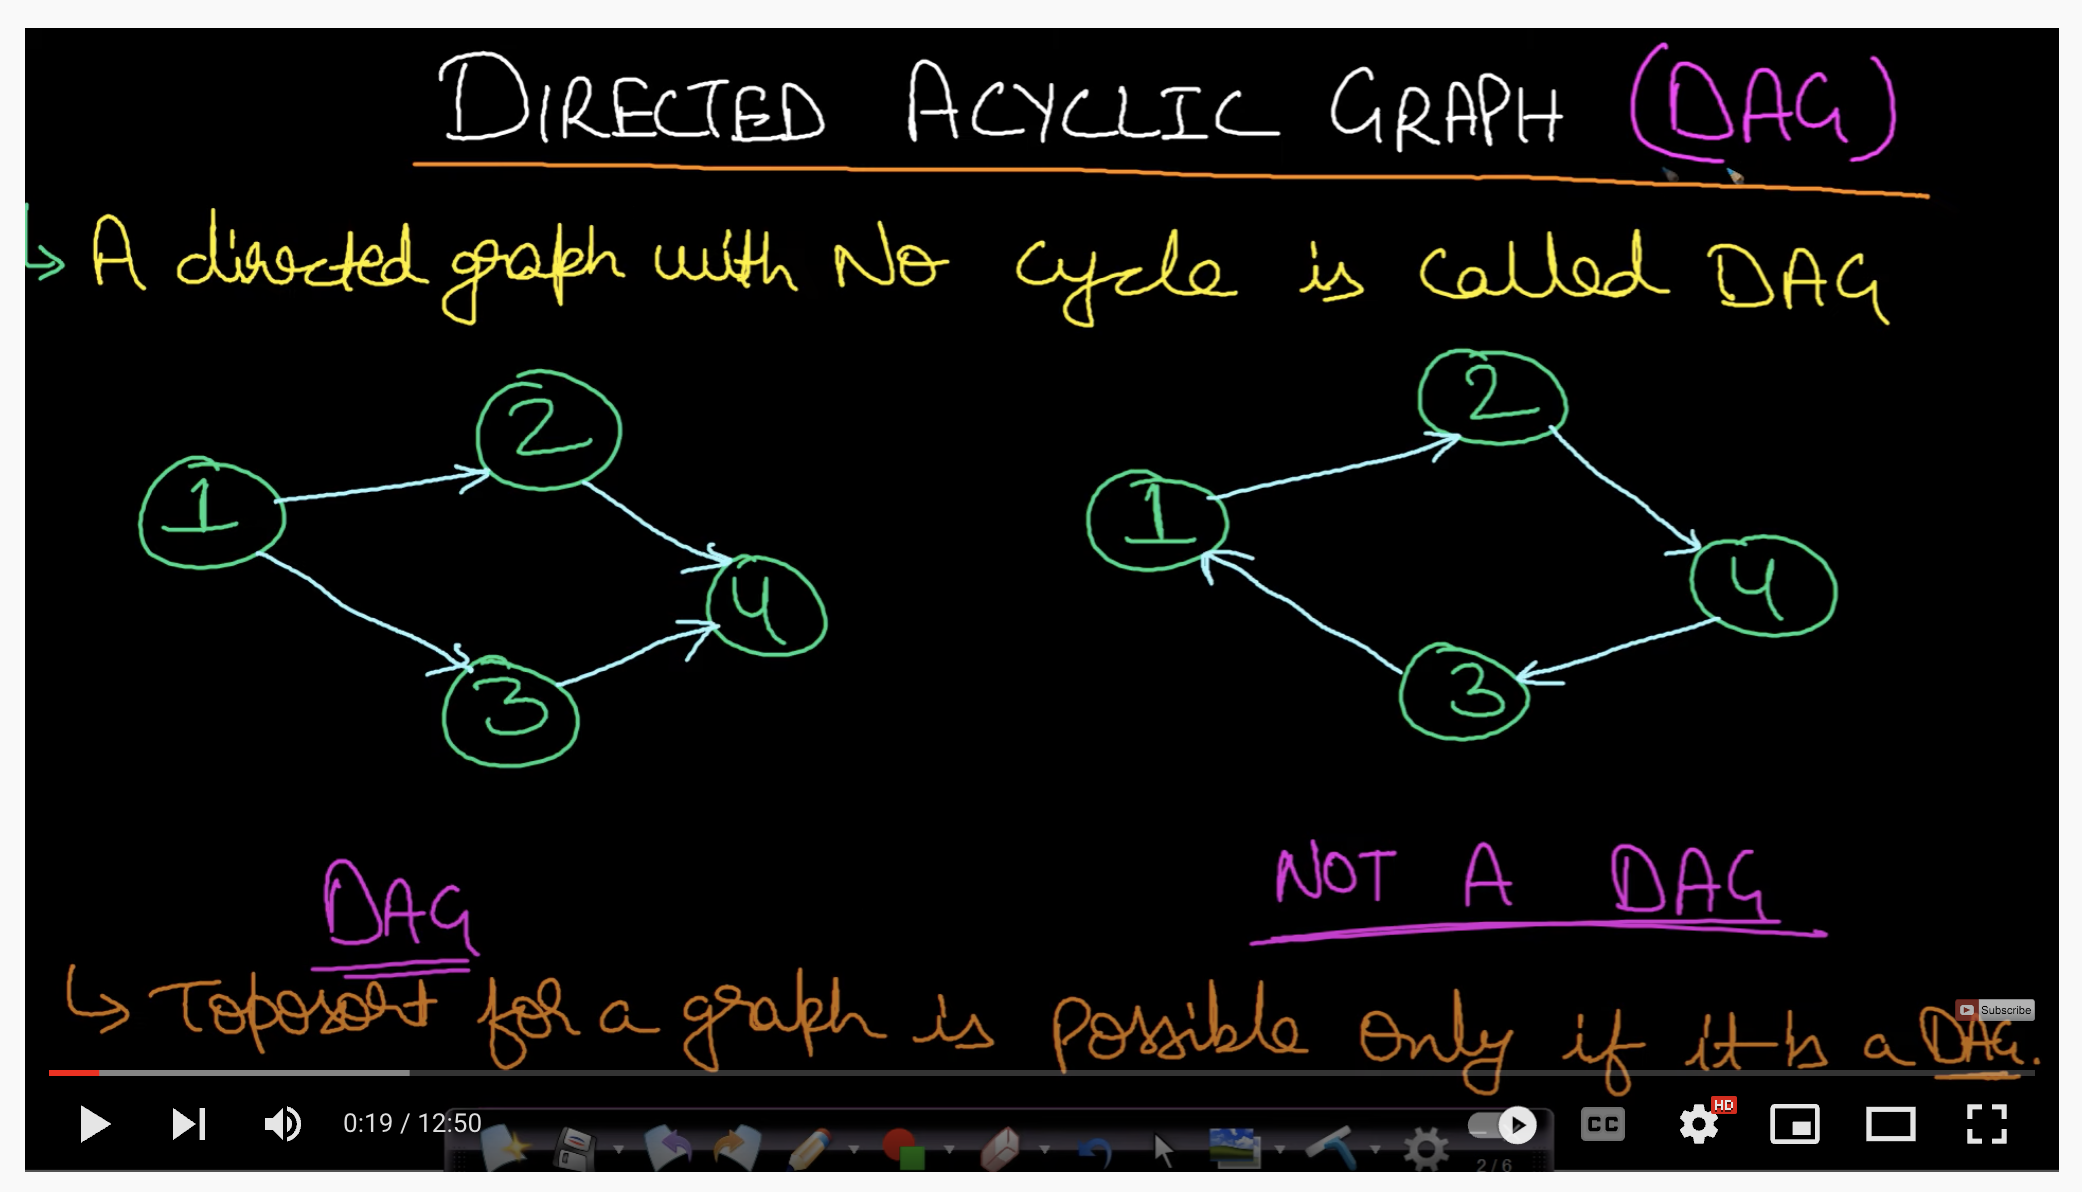 DIRECTED ACYCLIC GRAPH (DAG)
A directed graph with No cycle is called DAG
2
2
1
1
4
4
3
3
DAG
NOT A DAG
Toposort for a graph is possible only if it is a DAG.
Subscribe
0:19 / 12:50
CC
HD
2 / 6